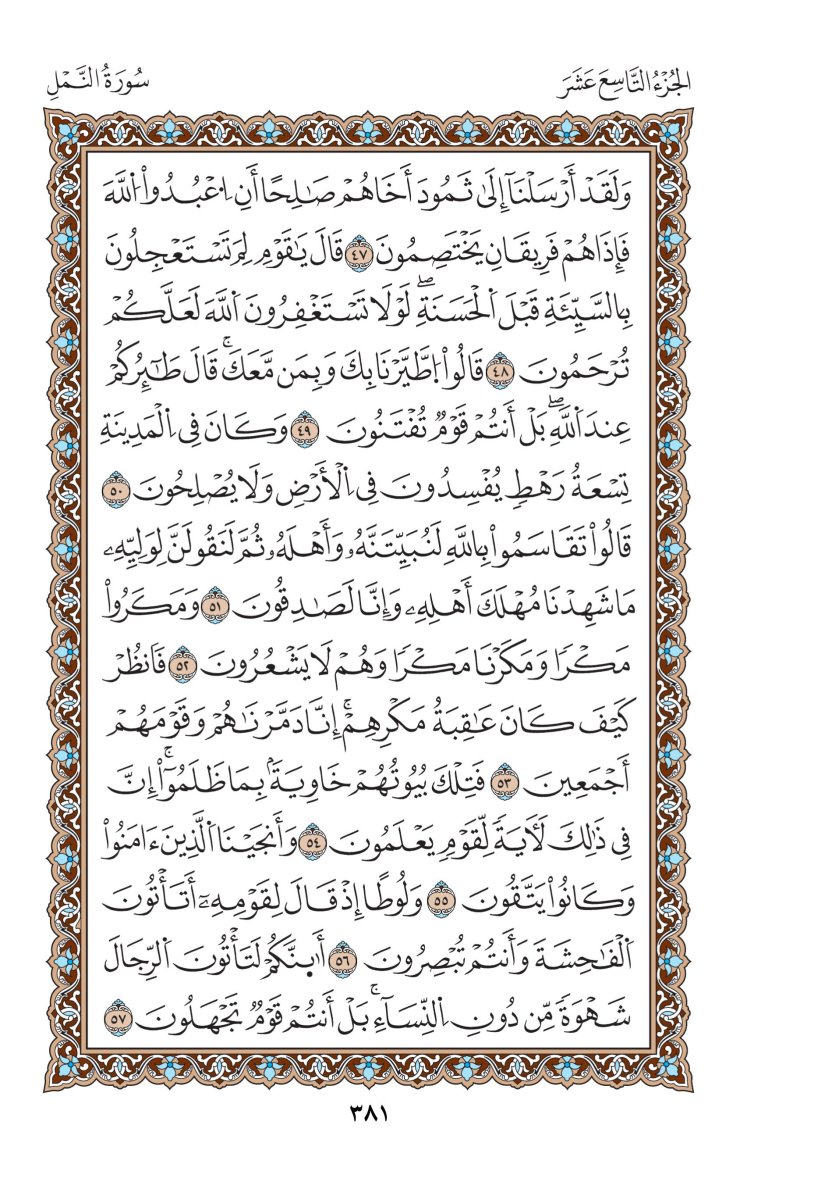 الجُزْءُ التَّاسِعَ عَشَرَ
سُورَةُ النَّمْلِ
وَلَقَدْ أَرْسَلْنَآ إِلَىٰ ثَمُودَ أَخَاهُمْ صَٰلِحًا أَنِ اِ۟عْبُدُواْ اُ۬للَّهَ
فَإِذَا هُمْ فَرِيقَانِ يَخْتَصِمُونَ ٤٧ قَالَ يَٰقَوْمِ لِمَ تَسْتَعْجِلُونَ
بِالسَّيِّئَةِ قَبْلَ اَ۬لْحَسَنَةِۖ لَوْلَا تَسْتَغْفِرُونَ اَ۬للَّهَ لَعَلَّكُمْ
تُرْحَمُونَ ٤٨ قَالُواْ اُ۪طَّيَّرْنَا بِكَ وَبِمَن مَّعَكَۚ قَالَ طَٰٓئِرُكُمْ
عِندَ اَ۬للَّهِۖ بَلْ أَنتُمْ قَوْمٞ تُفْتَنُونَ ٤٩ وَكَانَ فِي اِ۬لْمَدِينَةِ
تِسْعَةُ رَهْطٖ يُفْسِدُونَ فِي اِ۬لْأَرْضِ وَلَا يُصْلِحُونَ ٥٠
قَالُواْ تَقَاسَمُواْ بِاللَّهِ لَنُبَيِّتَنَّهُۥ وَأَهْلَهُۥ ثُمَّ لَنَقُولَنَّ لِوَلِيِّهِۦ
مَا شَهِدْنَا مُهْلَكَ أَهْلِهِۦ وَإِنَّا لَصَٰدِقُونَ ٥١ وَمَكَرُواْ
مَكْرٗا وَمَكَرْنَا مَكْرٗا وَهُمْ لَا يَشْعُرُونَ ٥٢ فَانظُرْ
كَيْفَ كَانَ عَٰقِبَةُ مَكْرِهِمْۚ إِنَّا دَمَّرْنَٰهُمْ وَقَوْمَهُمْ
أَجْمَعِينَ ٥٣ فَتِلْكَ بُيُوتُهُمْ خَاوِيَةَۢ بِمَا ظَلَمُوٓاْۚ إِنَّ
فِي ذَٰلِكَ لَأٓيَةٗ لِّقَوْمٖ يَعْلَمُونَ ٥٤ وَأَنجَيْنَا اَ۬لَّذِينَ ءَامَنُواْ
وَكَانُواْ يَتَّقُونَ ٥٥ وَلُوطًا إِذْ قَالَ لِقَوْمِهِۦٓ أَتَأْتُونَ
اَ۬لْفَٰحِشَةَ وَأَنتُمْ تُبْصِرُونَ ٥٦ أَا۪نَّكُمْ لَتَأْتُونَ اَ۬لرِّجَالَ
شَهْوَةٗ مِّن دُونِ اِ۬لنِّسَآءِۚ بَلْ أَنتُمْ قَوْمٞ تَجْهَلُونَ ٥٧
٣٨١